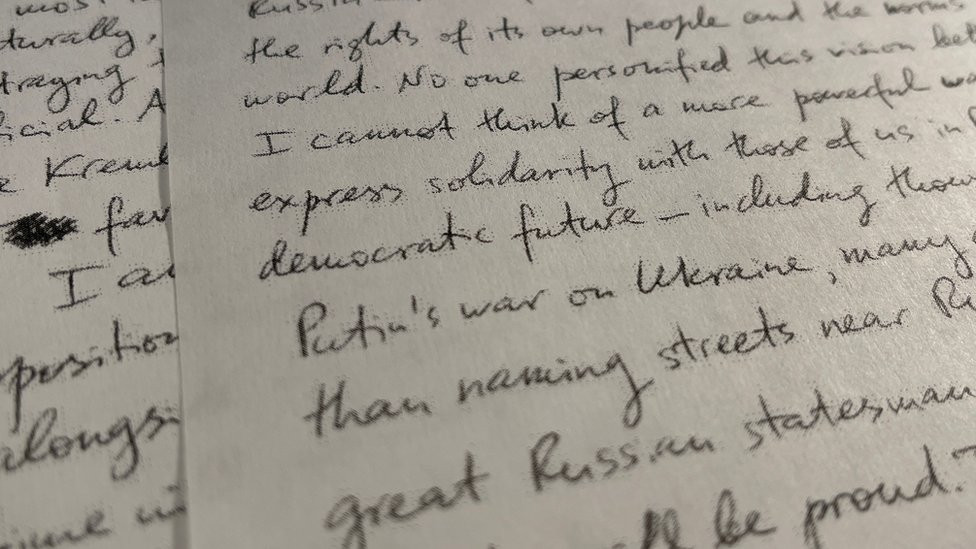 most
turally,
traying
icial. A
Kreml
far
I a
position
alongsi
ime
Russi
the rights of its own people and the norms
world. No one personified this vision bet
I cannot think of a more powerful w
express solidarity with those of us in
democratic future – including thou
Putin's war on Ukraine, many
than naming streets near Ru
great Russian statesman
ll be proud."